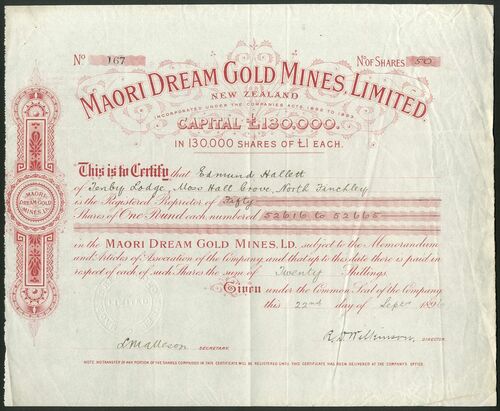 No 167
No OF SHARES 50
MAORI DREAM GOLD MINES, LIMITED
NEW ZEALAND
INCORPORATED UNDER THE COMPANIES ACTS 1862 TO 1893
CAPITAL £130,000.
IN 130,000 SHARES OF £1 EACH.
This is to Certify that Edmund Hallett
of Tenby Lodge, Moss Hall Grove, North Finchley
is the Registered Proprietor of Fifty
Shares of One Pound each, numbered 52616 to 52665
in the MAORI DREAM GOLD MINES, LD. subject to the Memorandum
and Articles of Association of the Company and that up to this date there is paid in
respect of each of such Shares the sum of Twenty Shillings.
Given under the Common Seal of the Company
this 22nd day of Sepr 1896
MAORI
DREAM GOLD
MINES, LD.
SECRETARY.
R. D. Wilkinson DIRECTOR.
NOTE. NO TRANSFER OF ANY PORTION OF THE SHARES COMPRISED IN THIS CERTIFICATE WILL BE REGISTERED UNTIL THIS CERTIFICATE HAS BEEN DELIVERED AT THE COMPANY'S OFFICE.